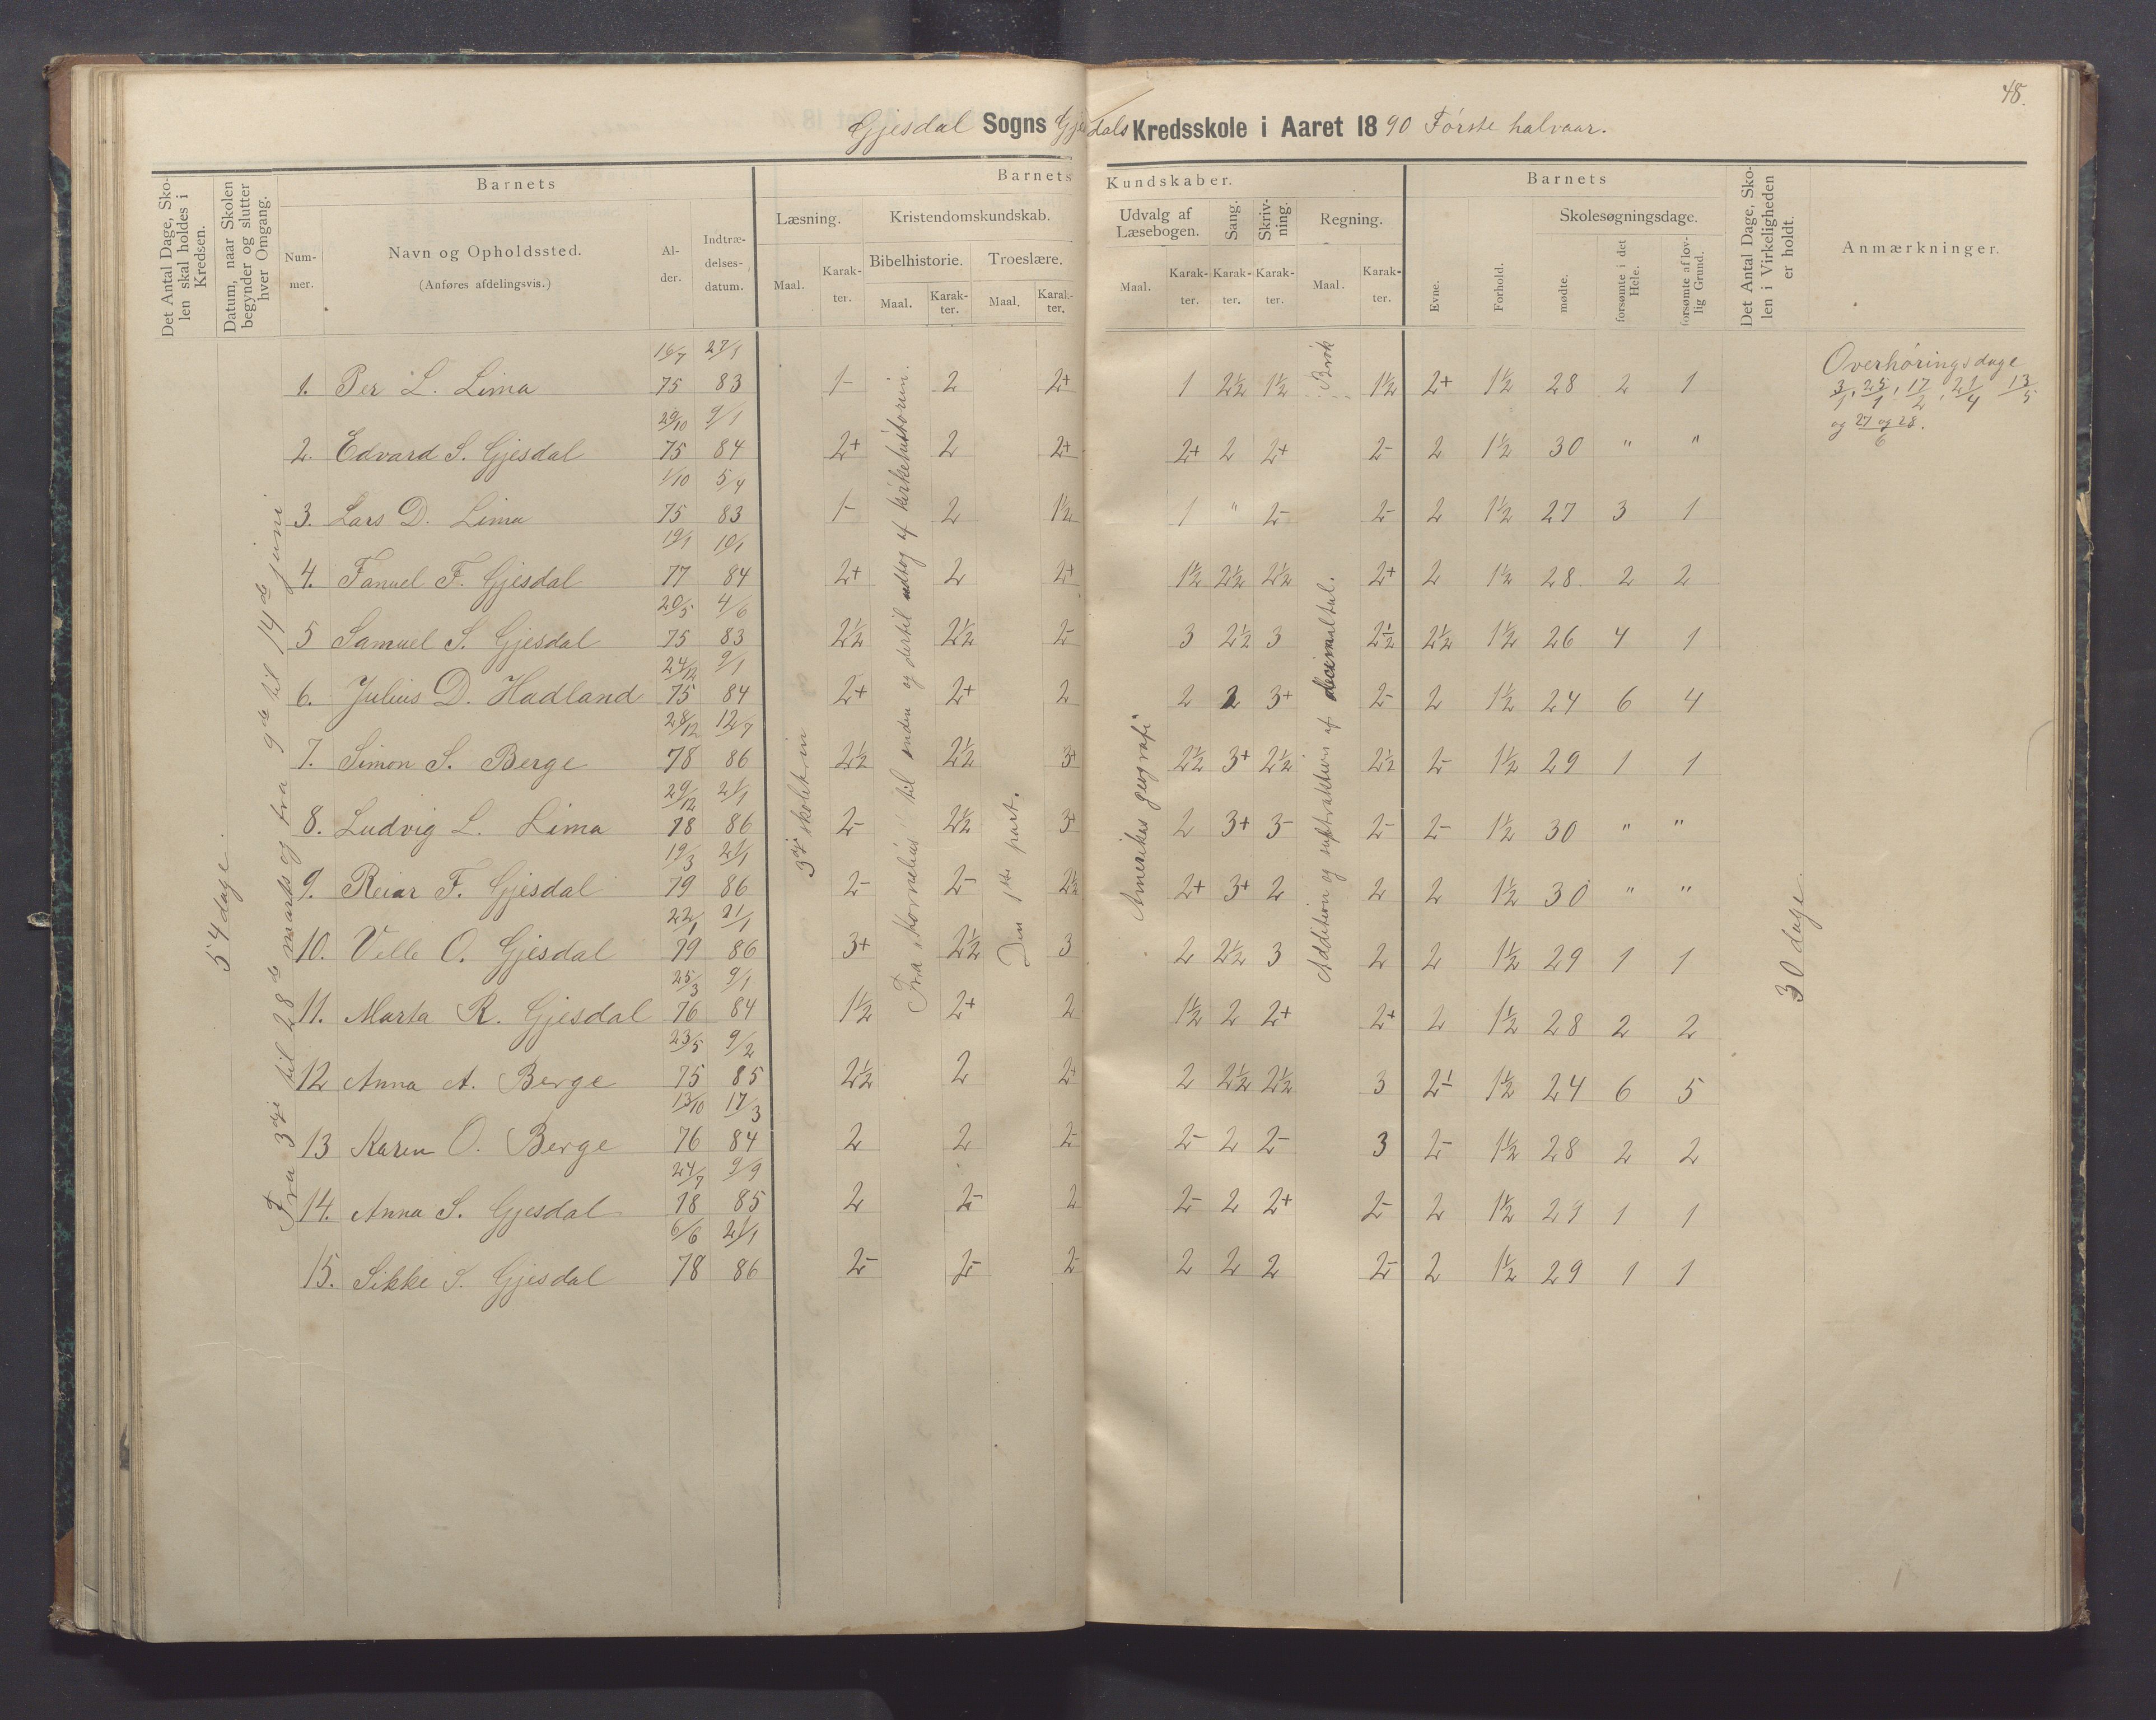 48.
Gjesdal Sogns Gjesdals Kredsskole i Aaret 1890 Første halvaar.
Det Antal Dage, Skolen skal holdes i Kredsen.
Datum, naar Skolen begynder og slutter hver Omgang.
Barnets
Nummer.
Navn og Opholdssted.
(Anføres afdelingsvis.)
Alder.
Indtrædelsesdatum.
Barnets Kundskaber.
Læsning.
Maal.
Karakter.
Kristendomskundskab.
Bibelhistorie.
Maal.
Karakter.
Troeslære.
Maal.
Karakter.
Udvalg af Læsebogen.
Maal.
Karakter.
Sang.
Karakter.
Skrivning.
Karakter.
Regning.
Maal.
Karakter.
Barnets
Evne.
Forhold.
Skolesøgningsdage.
mødte.
forsømte i det Hele.
forsømte af lovlig Grund.
Det Antal Dage, Skolen i Virkeligheden er holdt.
Anmærkninger.
54 dage.
Fra 3dje til 28de marts og fra 9de til 14de juni
3dje skoletrin
Fra „Kornelius" til enden og dertil udtog af kirkehistorien.
Den 1ste part.
Amerikas geografi
Brøk
Addition og subtraktion af decimaltal.
30 dage.
Overhøringsdage
3/1, 25/1, 17/2, 21/4 13/5
og 27 og 28/6.
1. Per L. Lima 16/7 75 27/1 83 1- 2 2+ 1 2½ 1½ 1½ 2+ 1½ 28 2 1
2. Edvard S. Gjesdal 29/10 75 9/1 84 2+ 2 2+ 2+ 2 2+ 2- 2 1½ 30 " "
3. Lars D. Lima 1/10 75 5/4 83 1- 2 1½ 1 " 2- 2- 2 1½ 27 3 1
4. Fanuel F. Gjesdal 19/1 77 10/1 84 2+ 2 2+ 1½ 2½ 2½ 2+ 2 1½ 28 2 2
5 Samuel S. Gjesdal 20/5 75 4/6 83 2½ 2½ 2- 3 2½ 3 2½ 2½ 1½ 26 4 1
6. Julius D. Hadland 24/12 75 9/1 84 2+ 2+ 2 2 2 3+ 2- 2 1½ 24 6 4
7. Simon S. Berge 28/12 78 12/7 86 2½ 2½ 3+ 2½ 3+ 2½ 2½ 2- 1½ 29 1 1
8. Ludvig L. Lima 29/12 78 21/1 86 2- 2½ 3+ 2 3+ 3- 2- 2- 1½ 30 " "
9. Reiar F. Gjesdal 19/3 79 21/1 86 2- 2- 2½ 2+ 3+ 2 2 2 1½ 30 " "
10. Velle O. Gjesdal 22/1 79 21/1 86 3+ 2½ 3 2 2½ 3 2 2 1½ 29 1 1
11. Marta R. Gjesdal 25/3 76 9/1 84 1½ 2+ 2 1½ 2 2+ 2+ 2 1½ 28 2 2
12 Anna A. Berge 23/5 75 9/2 85 2½ 2 2+ 2 2½ 2½ 3 2- 1½ 24 6 5
13 Karen O. Berge 13/10 76 17/3 84 2 2 2- 2- 2 2- 3 2- 1½ 28 2 2
14. Anna S. Gjesdal 24/7 78 9/9 85 2 2- 2 2- 2 2+ 2- 2 1½ 29 1 1
15. Sikke S. Gjesdal 6/6 78 21/1 86 2- 2- 2- 2 2 2 2- 2 1½ 29 1 1